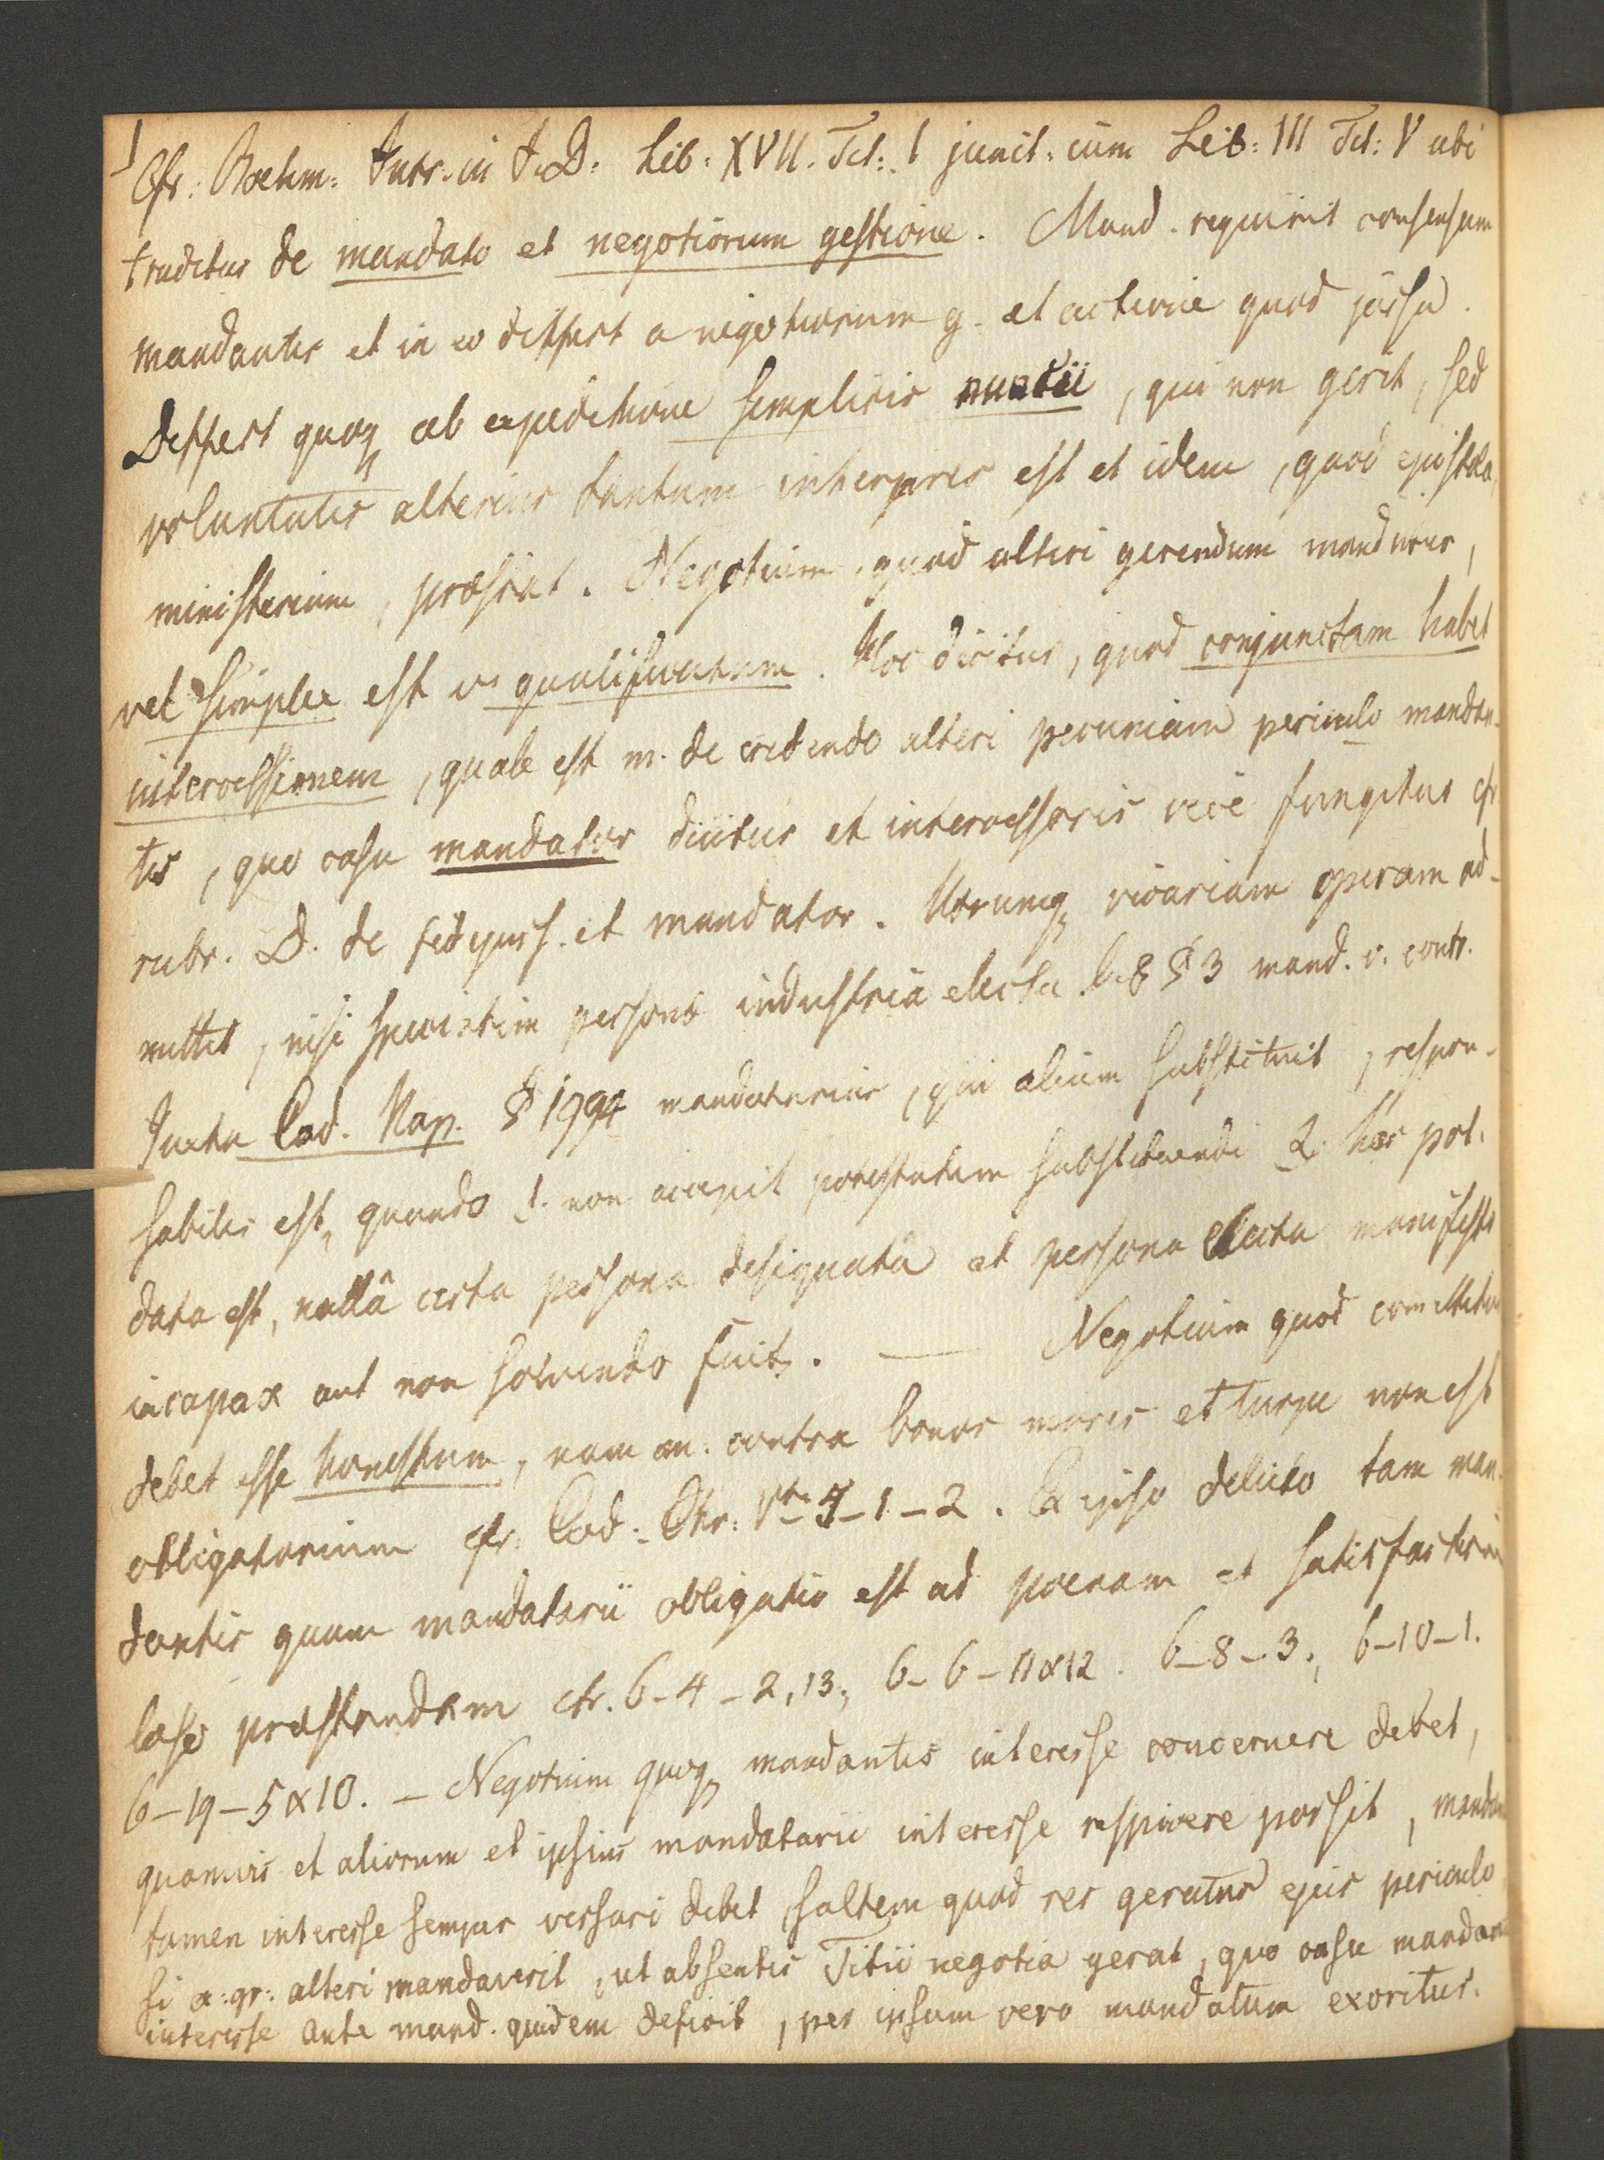 1 Cfr: Boehm: Intr. in J. D: Lib: XVII. Tit: 1 junct. cum Lib: III Tit: V ubi
traditur de mandato et negotiorum gestione. Mand. requirit consensum
mandantis et in eo differt a negotiorum g. et actione quod jussu.
Differt quoq ab expeditione simplicis nuntii, qui non gerit, sed
voluntatis alterius tantum interpres est et idem, quod epistola,
ministerium, præstat. Negotium, quod alteri gerendum mandatur,
vel simplex est v. qualificatum. Hoc dicitur, quod conjunctam habet
intercessionem, quale est m. de credendo alteri pecuniam periculo mandan-
tis, quo casu mandator dicitur et intercessoris vice fungitur cfr
rubr. D. de fidejuss. et mandator. Utrumq vicariam operam ad-
mittit, nisi speciatim personæ industria electa l. 8 § 3 mand. v. contr.
Juxta Cod. Nap. § 1994 mandatarius, qui alium substituit, respon-
sabilis est, quando 1. non accepit potestatem substituendi 2. hæc pot.
data est, nullâ certa persona designatâ et persona electa manifeste
incapax aut non solvendo fuit. — Negotium quod committitur
debet esse honestum, nam m. contra bonos mores et turpe non est
obligatorium cfr. Cod: Chr: Vti 5-1-2. Ex ipso delicto tam man-
dantis quam mandatarii obligatio est ad poenam et satisfactionem
læso præstandam cfr. 6-4-2,13; 6-6-11&12. 6-8-3., 6-10-1.
6-19-5&10. — Negotium quoq mandantis interesse concernere debet,
quamvis et aliorum et ipsius mandatarii interesse respicere possit, mandan
tamen interesse semper versari debet, saltem quod res geratur ejus periculo
si ex: gr: alteri mandaverit, ut absentis Titii negotia gerat, quo casu mandantis
interesse ante mand. quidem deficit, per ipsum vero mandatum exoritur.